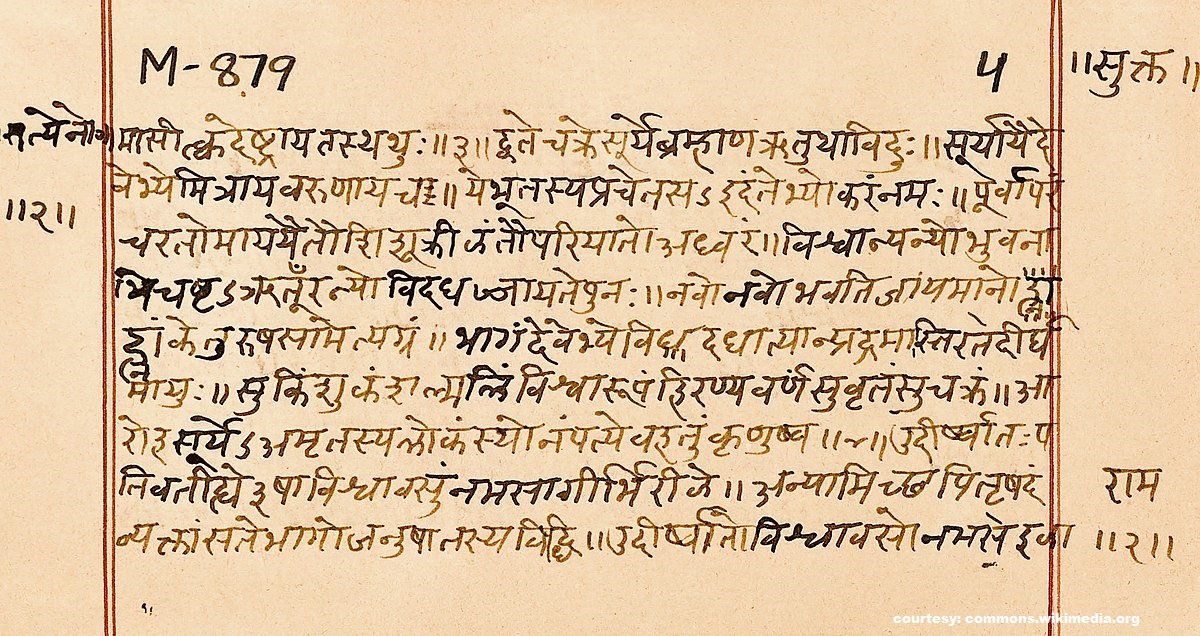 M-879 4 ॥सुक्त॥
सत्येनो॰ मासीत्क्वदेष्ट्रायतस्थथुः॥३॥द्वेतेचक्रेसूर्येब्रम्हाणऋतुथाविदुः॥सूर्यायैदे
वेभ्येमित्रायवरुणायच॥येभूतस्यप्रचेतसऽइदंतेभ्योकरंनमः॥पूर्वापरं
॥२॥
चरतोमाययैतौशिशूक्रीळंतौपरियातोअध्वरं॥विश्वान्यन्योभुवना
भिचष्टऽऋतूँरन्योविदधज्जायतेपुनः॥नवोनवोभवतिजायमानोह्ना
ह्नांकेतुरुषसामेत्यग्रं॥भागंदेवेभ्योविदधात्यान्प्रद्रमास्तिरतेदीर्घ
मायुः॥सुकिंशुकंशल्मलिंविश्वारूपंहिरण्यवर्णसुवृतंसुचक्रं॥आ
रोहसूर्येऽअमृतस्यलोकंस्योनंपत्येवहतुंकृणुष्व॥४॥उदीर्ष्वातःप
तिवतीह्येषाविश्वावसुंनमसागीर्भिरीळे॥अन्यामिच्छपितृषदं
राम
न्यक्तांसतेभागोजनुषातस्यविद्धि॥उदीर्ष्वातोविश्वावसोनमसेळा
॥२॥
courtesy: commons.wikimedia.org